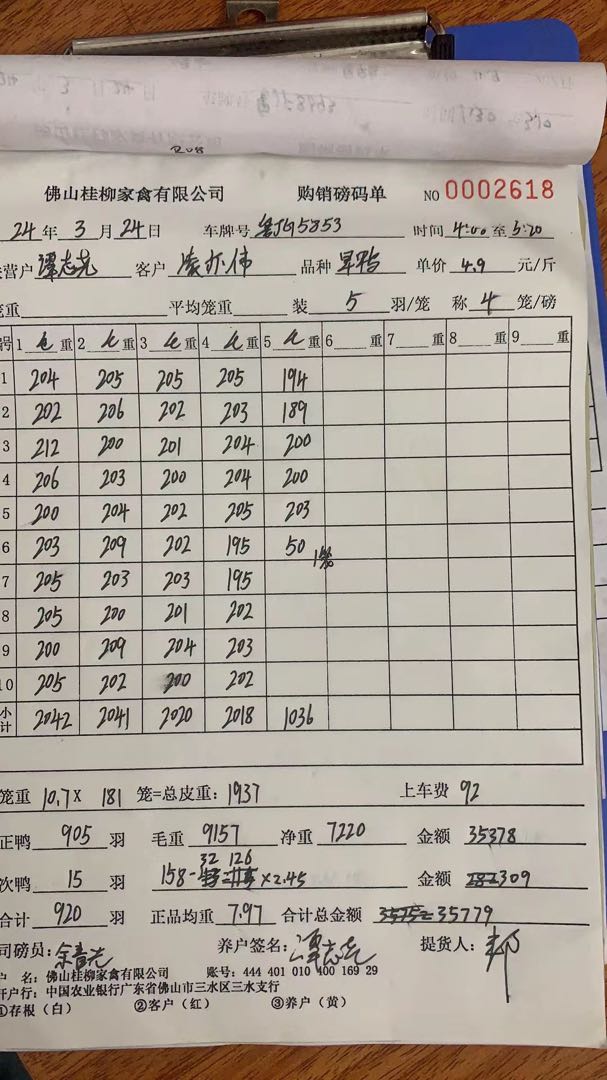 佛山桂柳家禽有限公司 购销磅码单 NO 0002618
24年 3月24日 车牌号 G5853 时间 4:00至5:20
营户 谭志尧 客户 品种 旱鸭 单价 4.9 元/斤
笼重 平均笼重 装 5 羽/笼 称 4 笼/磅
号 1 毛重 2 毛重 3 毛重 4 毛重 5 毛重 6 重 7 重 8 重 9 重
1 204 205 205 205 194
2 202 206 202 203 189
3 212 200 201 204 200
4 206 203 200 204 200
5 200 204 202 205 203
6 203 209 202 195 50 1笼
7 205 203 203 195
8 205 200 201 202
9 200 209 204 203
10 205 202 200 202
小计 2042 2041 2020 2018 1036
笼重 10.7× 181 笼=总皮重: 1937 上车费 92
正鸭 905 羽 毛重 9157 净重 7220 金额 35378
32 126
次鸭 15 羽 158- ×2.45 金额 282 309
合计 920 羽 正品均重 7.97 合计总金额 35779
司磅员: 养户签名: 谭志尧 提货人:
户 名: 佛山桂柳家禽有限公司 账号: 444 401 010 400 169 29
开户行: 中国农业银行广东省佛山市三水区三水支行
①存根(白) ②客户(红) ③养户(黄)